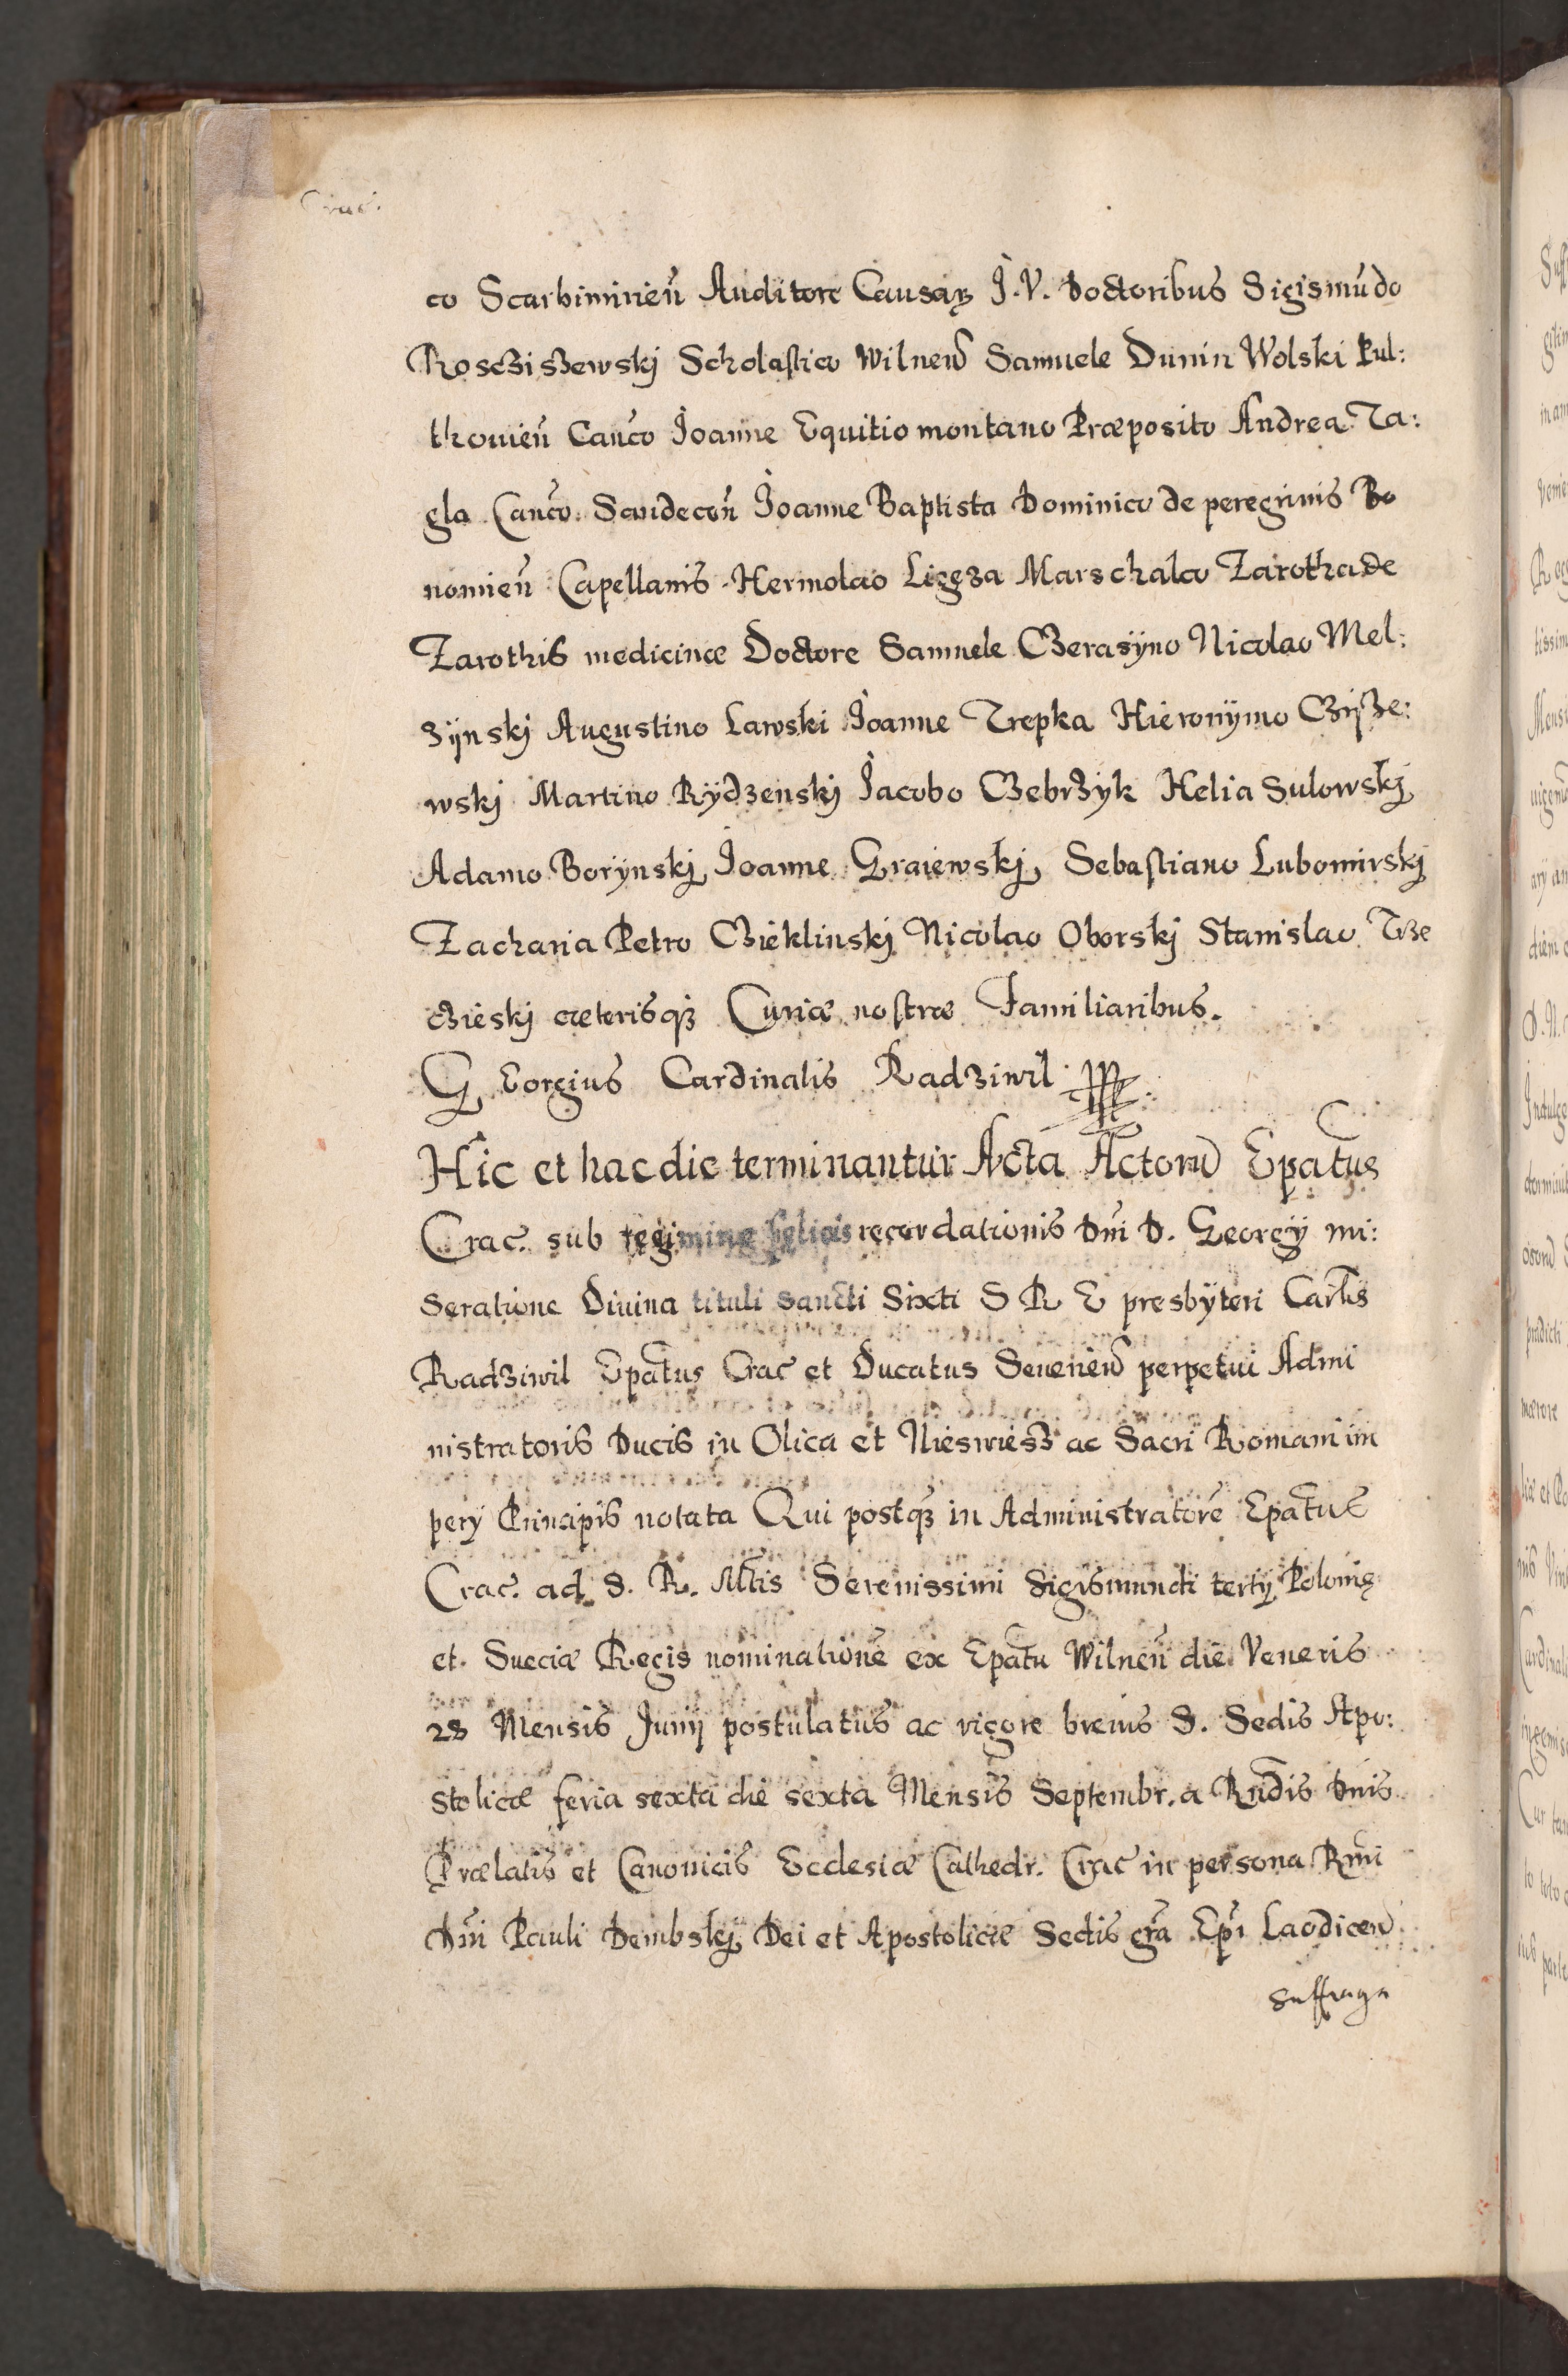 Crac.
co Scarbimirień Auditore Causaꝝ J.V. Doctoribus Sigismūdo
Roscziszewskj Scholastico Wilneñ Samuele Dunin Wolski Pul:
thouień Canco Joanne Equitio montano Præposito Andrea Ta:
gla Canco. Sandeceñ Joanne Baptista Dominico de peregrinis Bo
nonieñ Capellanis. Hermolao Ligęza Marschalco Zarotha de
Zarothis medicinæ Doctore Samuele Czerasÿno Nicolao Mel:
zÿnskj Augustino Lawski Joanne Trepka Hieronÿmo Czÿze:
wskj Martino Rÿdzenskj Jacobo Czebrzÿk Helia Sulowskj
Adamo Borÿnskj Joanne Graiewskj, Sebastiano Lubomirskj
Zacharia Petro Czieklinskj Nicolao Oborskj Stanislao Trze
czieskj cæterisqꝫ Curiæ nostræ Familiaribus.
Georgius Cardinalis Radziwil
Hic et hac die terminantur Acta Actorū Epatus
Crac. sub regimine felicis recordationis Dni D. Georgÿ mi:
seratione Diuina tituli sancti Sixti S R E presbÿteri Carlis
Radziwil Epatus Crac et Ducatus Seuerieñ perpetui Admi
nistratoris Ducis in Olica et Nieswiesz ac Sacri Romani im
perÿ Principis notata Qui postqꝫ in Administratorē Epatus
Crac. ad S. R. Mtis Serenissimi Sigismundi tertÿ Polonię
et Sueciæ Regis nominationē ex Epatu Wilneñ die Veneris
28 Mensis Junÿ postulatus ac vigore breuis S. Sedis Apo:
stolicæ feria sexta die sexta Mensis Septembr. a Rndis Dnis
Prælatis et Canonicis Ecclesiæ Cathedr. Crac in persona Rmi
Dni Pauli Dembskj Dei et Apostolicæ Sedis gra Epi Laodiceñ
suffraga